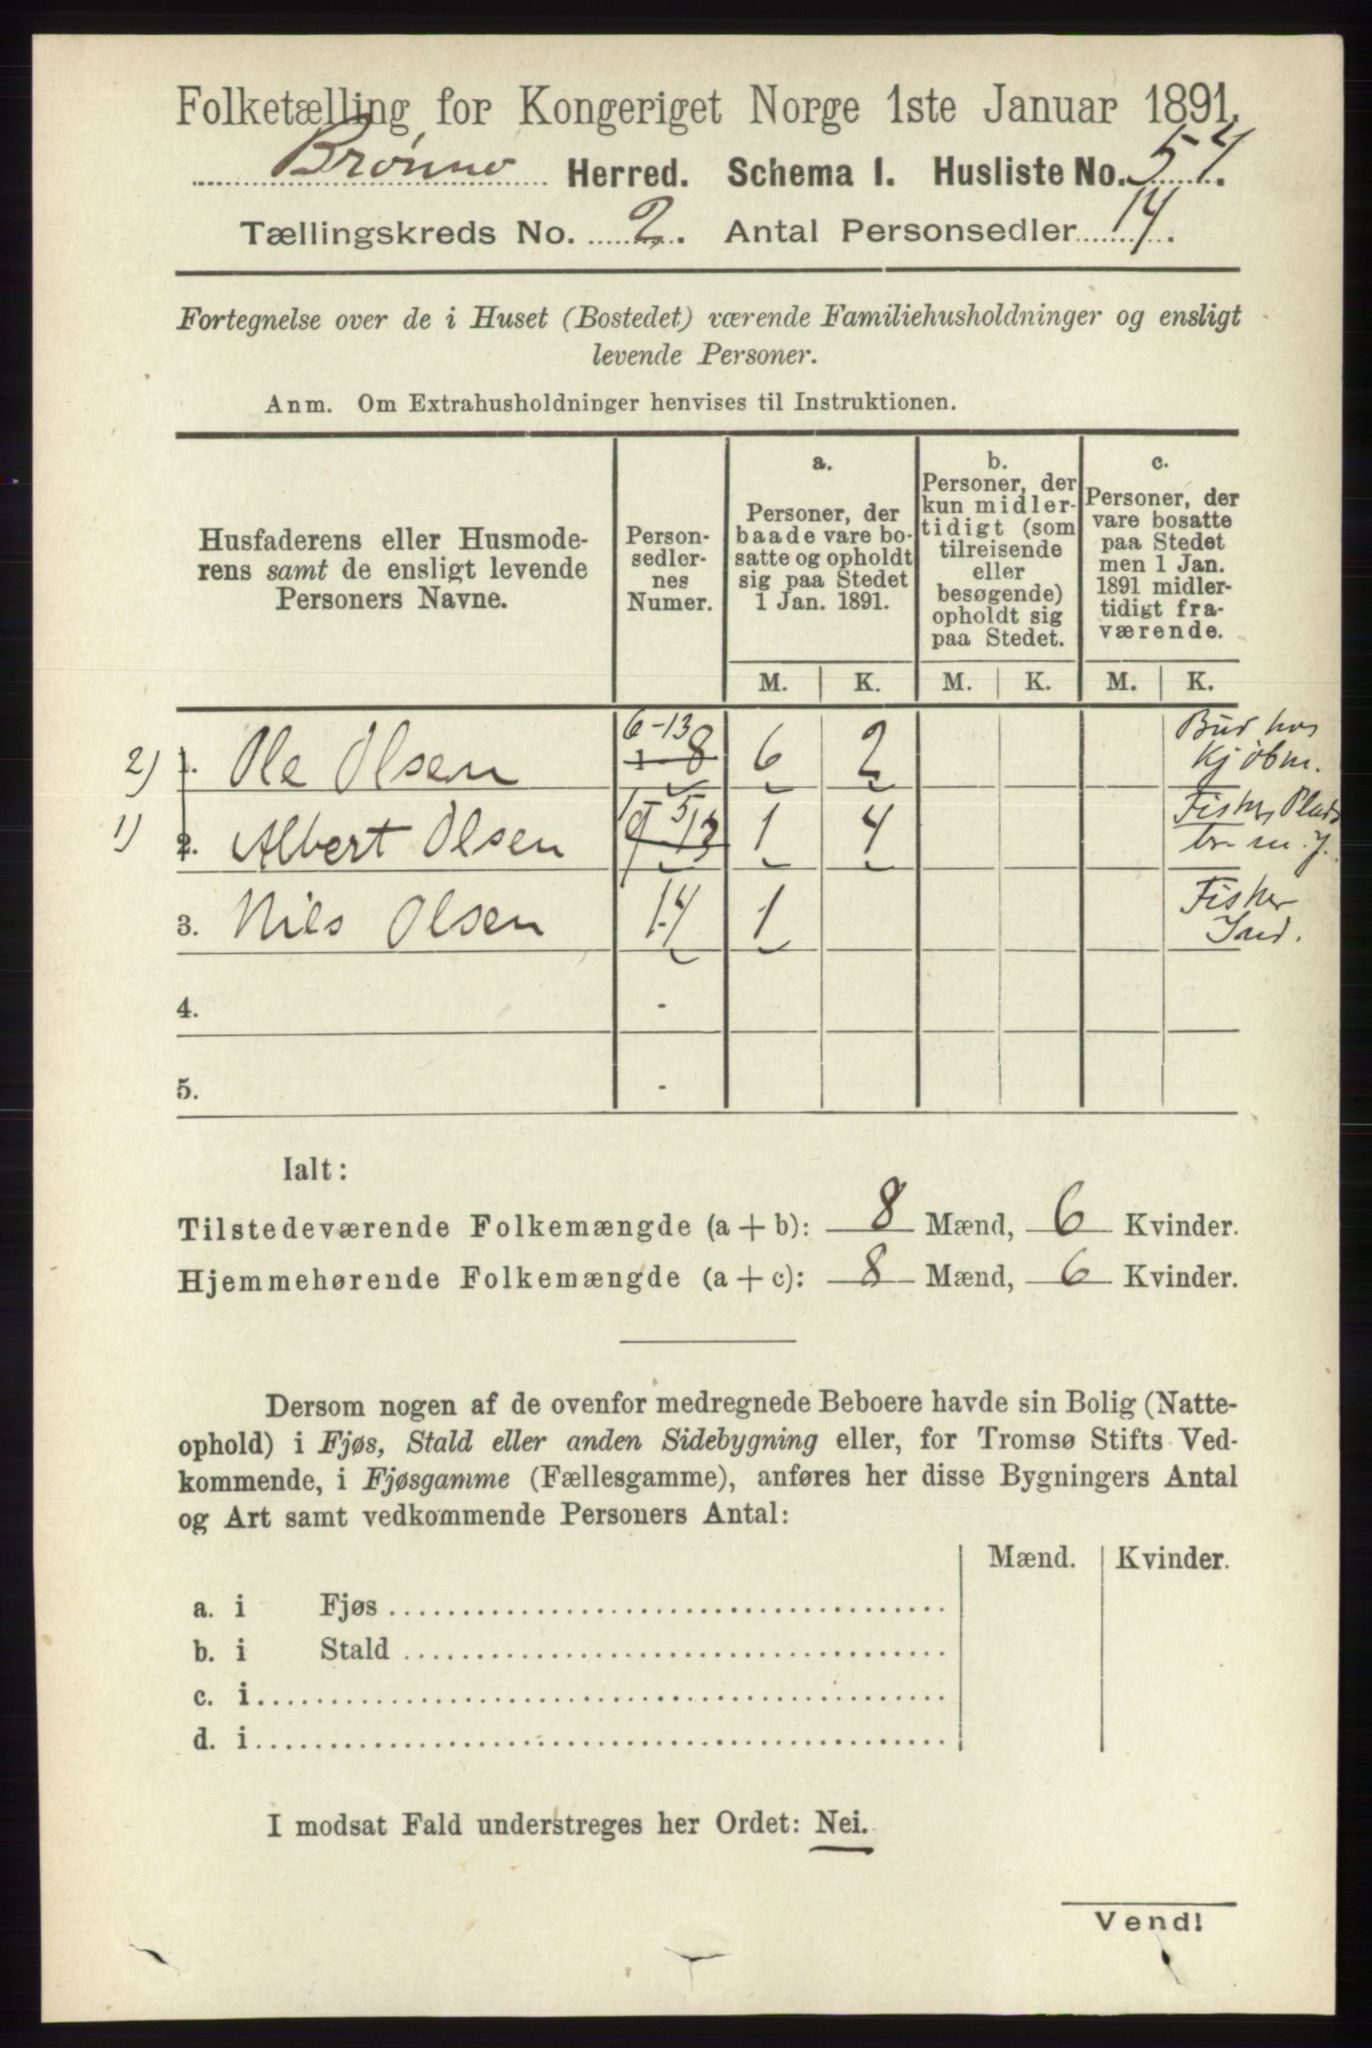 Folketælling for Kongeriget Norge 1ste Januar 1891.
Brønnø Herred. Schema 1. Husliste No. 54.
Tællingskreds No. 2. Antal Personsedler 14.
Fortegnelse over de i Huset (Bostedet) værende Familiehusholdninger og ensligt
levende Personer.
Anm. Om Extrahusholdninger henvises til Instruktionen.
Husfaderens eller Husmode-
rens samt de ensligt levende
Personers Navne.
Person-
sedler-
nes
Numer.
a.
Personer, der
baade vare bo-
satte og opholdt
sig paa Stedet
1 Jan. 1891.
b.
Personer, der
kun midler-
tidigt (som
tilreisende
eller
besøgende)
opholdt sig
paa Stedet.
c.
Personer, der
vare bosatte
paa Stedet
men 1 Jan.
1891 midler-
tidigt fra-
værende.
M. K. M. K. M. K.
2) 1. Ole Olsen 6-13 1-8 6 2 Bud hos
Kjøbm.
1) 2. Albert Olsen 1 4 Fisker
3. Nils Olsen 14 1 Fisker
Ind.
4. -
5. -
Ialt:
Tilstedeværende Folkemængde (a + b): 8 Mænd, 6 Kvinder.
Hjemmehørende Folkemængde (a + c): 8 Mænd, 6 Kvinder.
Dersom nogen af de ovenfor medregnede Beboere havde sin Bolig (Natte-
ophold) i Fjøs, Stald eller anden Sidebygning eller, for Tromsø Stifts Ved-
kommende, i Fjøsgamme (Fællesgamme), anføres her disse Bygningers Antal
og Art samt vedkommende Personers Antal:
Mænd. Kvinder.
a. i Fjøs
b. i Stald
c. i
d. i
I modsat Fald understreges her Ordet: Nei.
Vend!